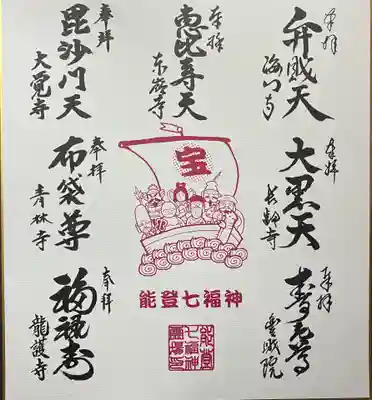 奉拝
弁財天
海門寺
奉拝
大黒天
長壽寺
奉拝
寿老尊
宝幢院
奉拝
恵比寿天
東嶺寺
宝
能登七福神
能登
七福神
霊場印
奉拝
毘沙門天
大覚寺
奉拝
布袋尊
青林寺
奉拝
福禄寿
龍護寺